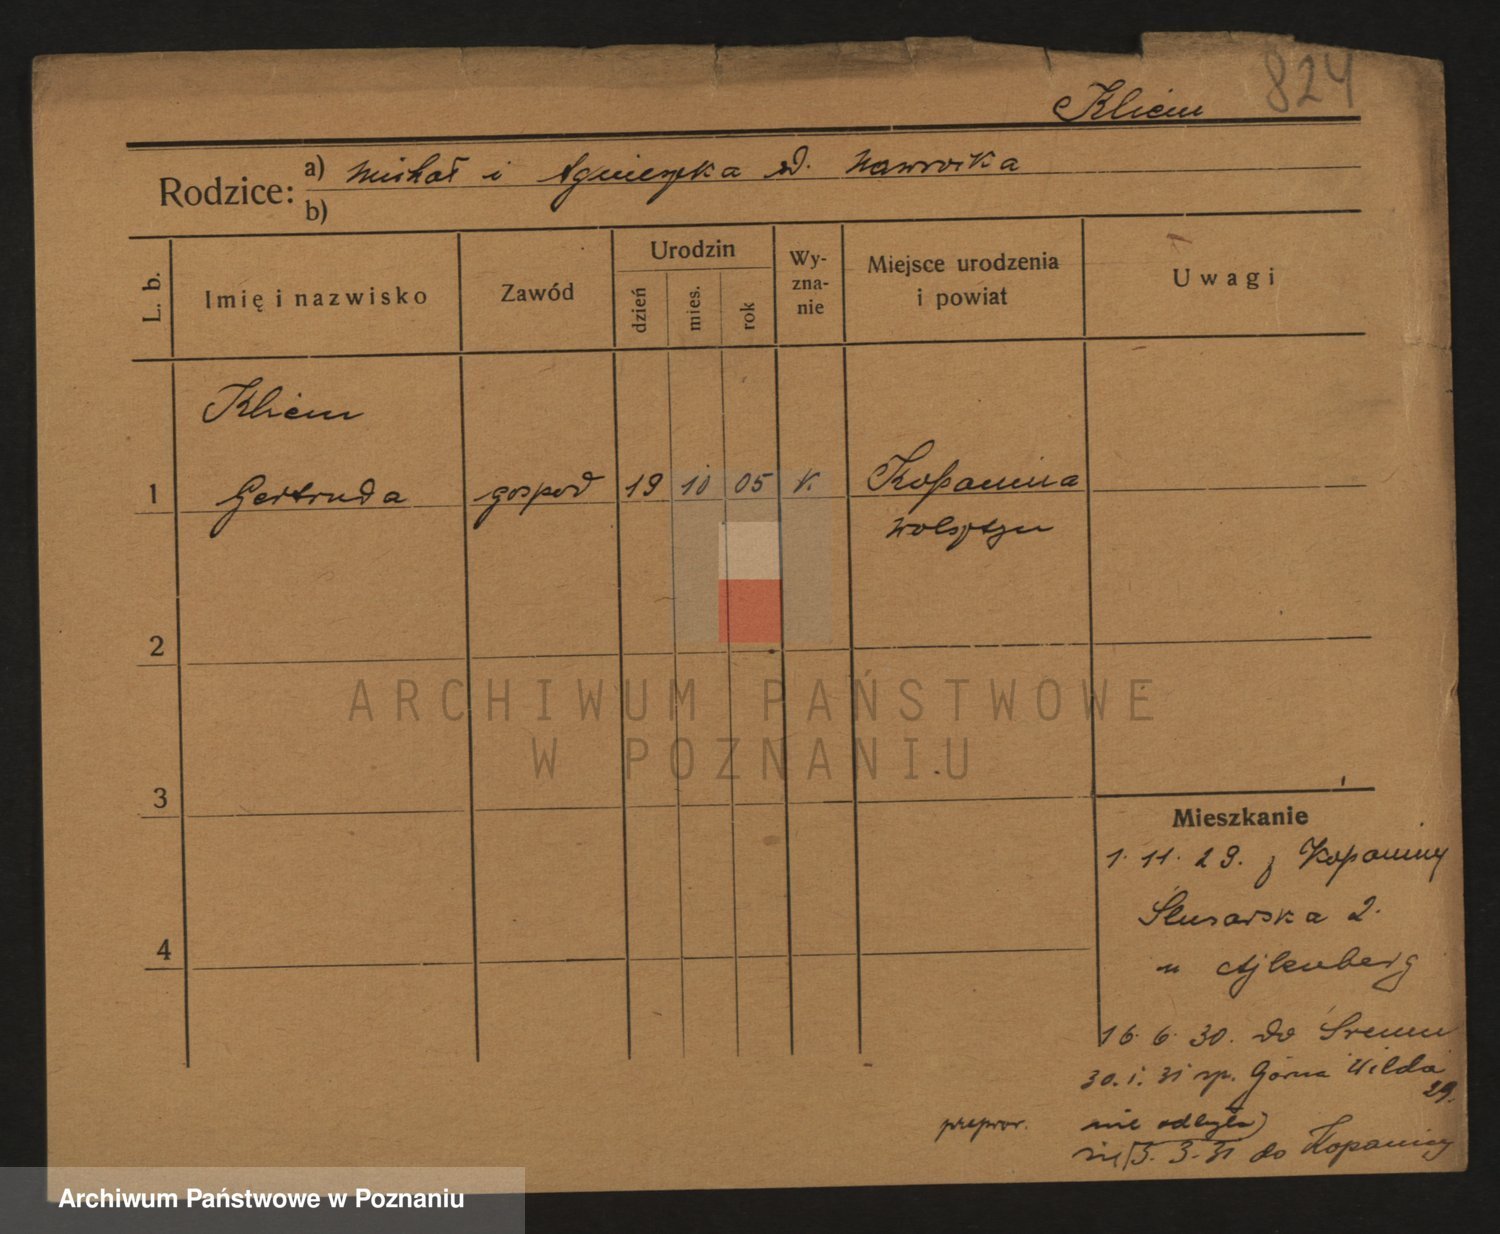 824
Kliem
Rodzice: a) Michał i Agnieszka zd. Nawrocka
b)
L. b. Imię i nazwisko Zawód Urodzin dzień mies. rok Wy-zna-nie Miejsce urodzenia i powiat Uwagi
Kliem
1 Gertruda gospod 19 10 05 k. Kopanina
Wolsztyn
2
3
4
Mieszkanie
1. 11. 29. z Kopaniny
Ślusarska 2.
u
16. 6. 30. do Śremu
30. 1. 31 sp. Górna Wilda
29.
nie odbyła
3. 3. 31 do Kopanicy
ARCHIWUM PAŃSTWOWE
W POZNANIU
Archiwum Państwowe w Poznaniu